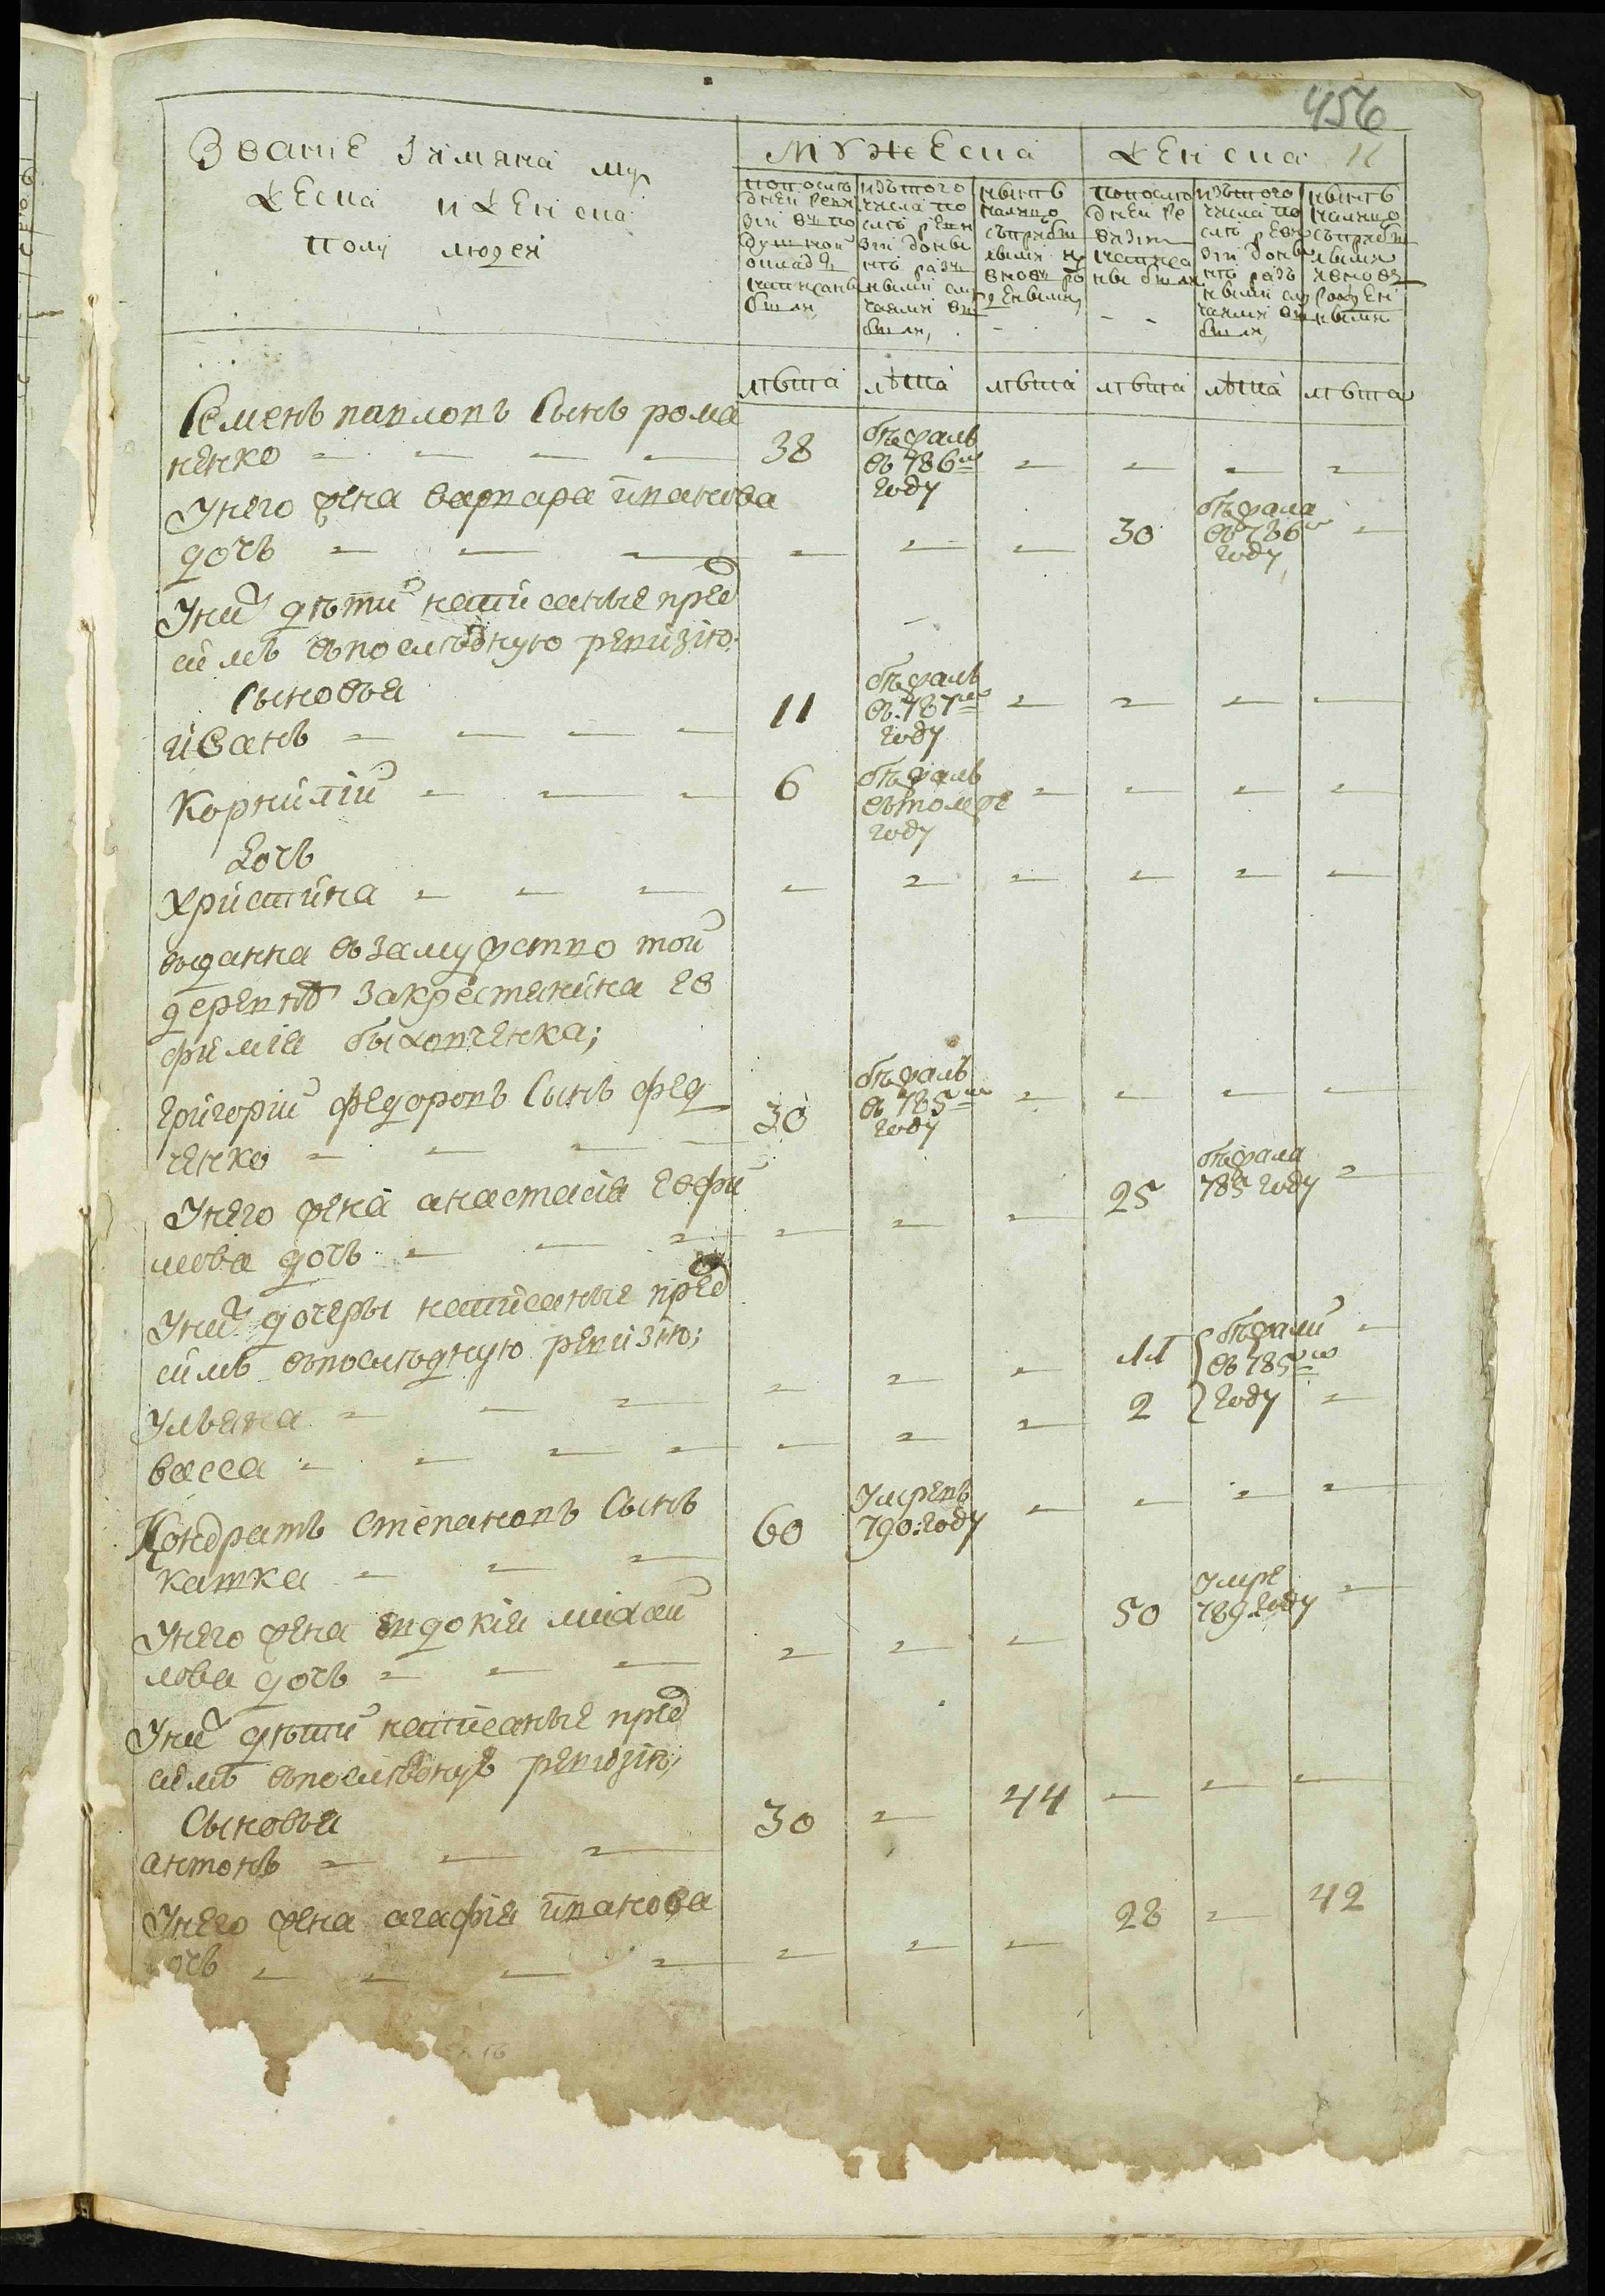 456
11
Званіе Іимяна му
жеска и женска
полу людей
Мужеска
Женска
попослѣ
дней реви
зіи въ по
душной
окладъ
написаны
были
изътого
числа по
слѣ реви
зіи доны
нѣ разъ
ными слу
чаями вы
были,
нынѣ
налицо
съприбы
лыми и
вновь ро
жденными
попослѣ
дней ре
визіи
написа
ны были
изътого
числа по
слѣ реви
зіи доны
нѣ разъ
ными слу
чаями вы
были,
нынѣ
налицо
съприбы
лыми
ивновь
рожден
ными
лѣта лѣта лѣта лѣта лѣта лѣта
Семенъ павловъ Сынъ рома
ненко 38 бѣжалъ въ 786м году
Унего жена варвара иванова
дочь 30 бѣжала въ 786м году
Уних дѣти написаные пред
симъ впослѣдную ревизію
Сыновья
иванъ 11 бѣжалъ въ 787м году
Корнилій 6 бѣжалъ втомже году
Дочь
Христина
выдана взамужство той
деревнѣ закрестянина ев
фимія быховченка;
григорій федоровъ Сынъ фед
ченко 30 бѣжалъ въ 785м году
Унего жена анастасія евфи
мова дочь 25 бѣжала 785 году
Уних дочеры написаные пред
симъ впослѣдную ревизію;
Ульяна 11 бѣжали въ 785м
васса 2 году
Кондратъ степановъ Сынъ
катка 60 Умревъ 790: году
Унего жена евдокія михаи
лова дочь 50 Умре 789 году
Уних дѣти написаные пред
симъ впослѣднуѣ ревизію,
Сыновья
антонъ 30 44
Унего жена агафія иванова
очь 28 42